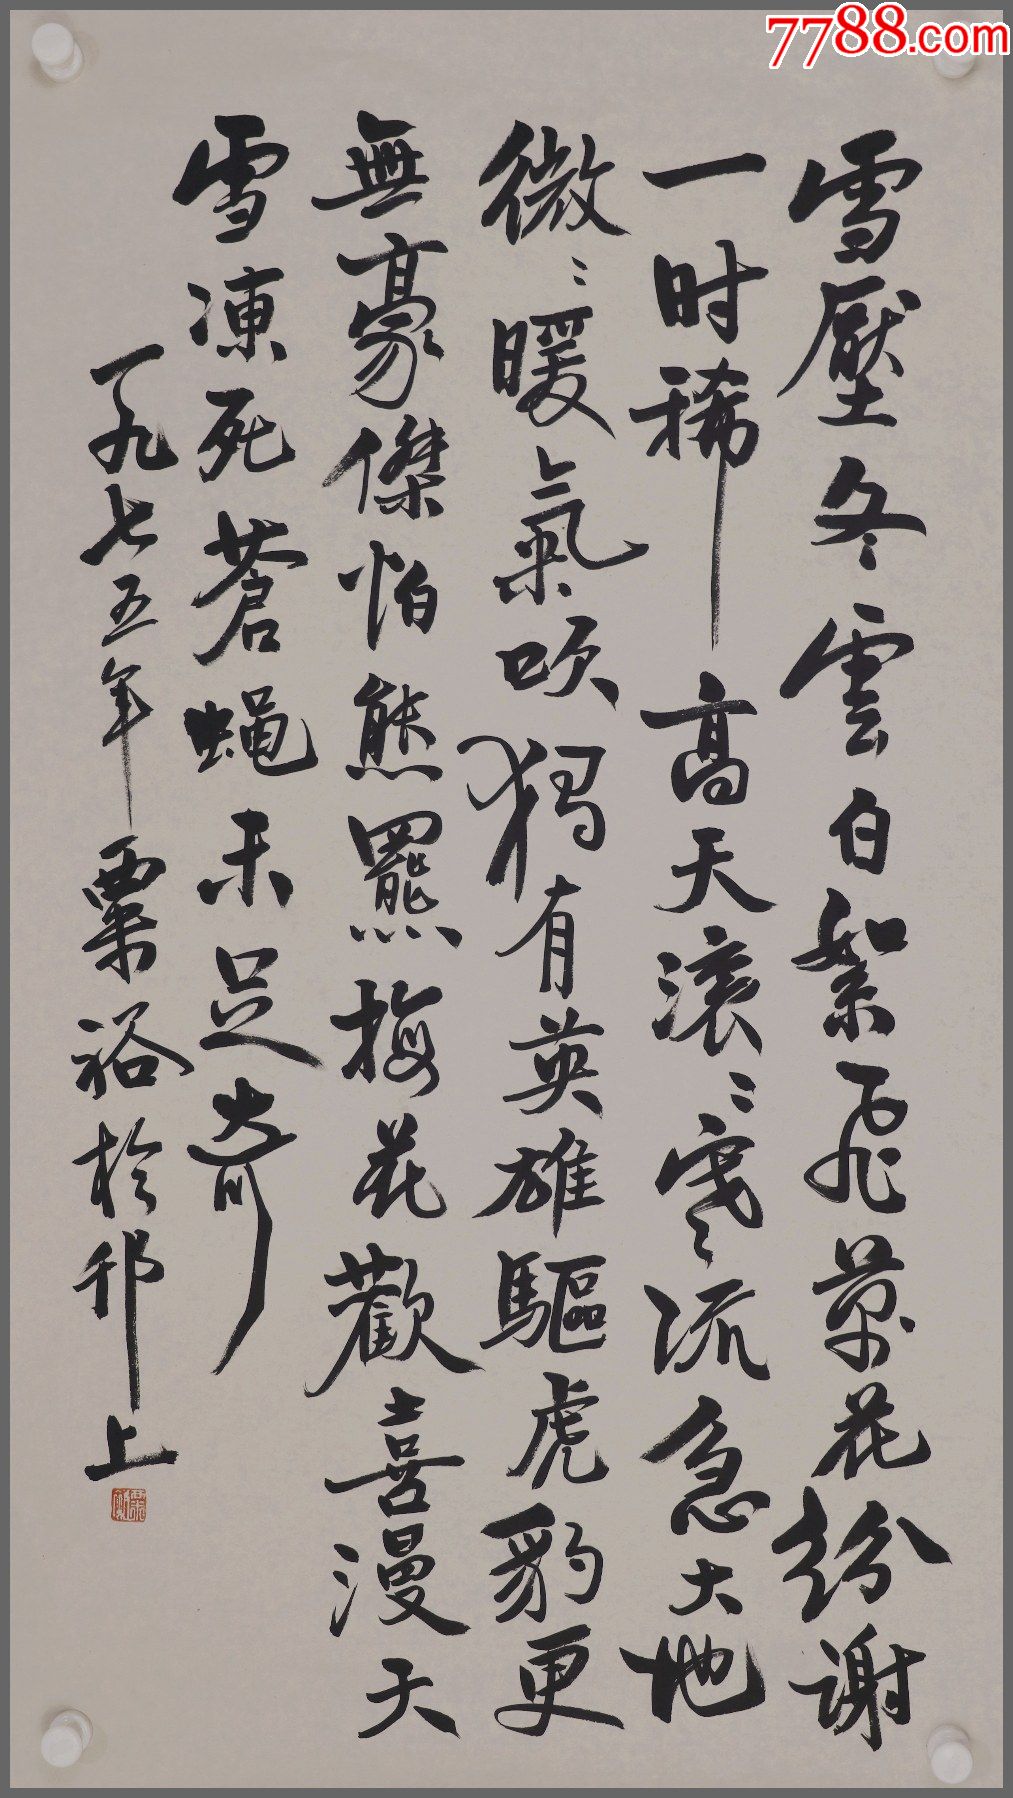 7788.com
雪壓冬雲白絮飛萬花紛謝
一时稀高天滾〻寒流急大地
微〻暖氣吹獨有英雄驅虎豹更
無豪傑怕熊羆梅花歡喜漫天
雪凍死蒼蝇未足奇
一九七五年粟裕於邗上